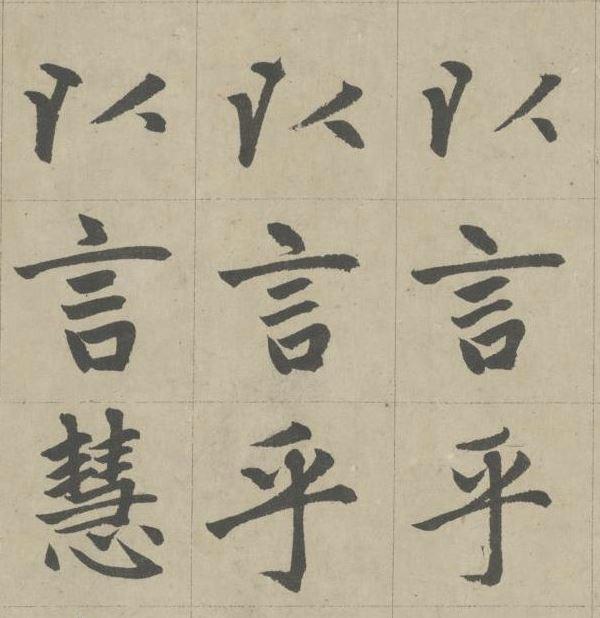 以言乎
以言乎
以言慧